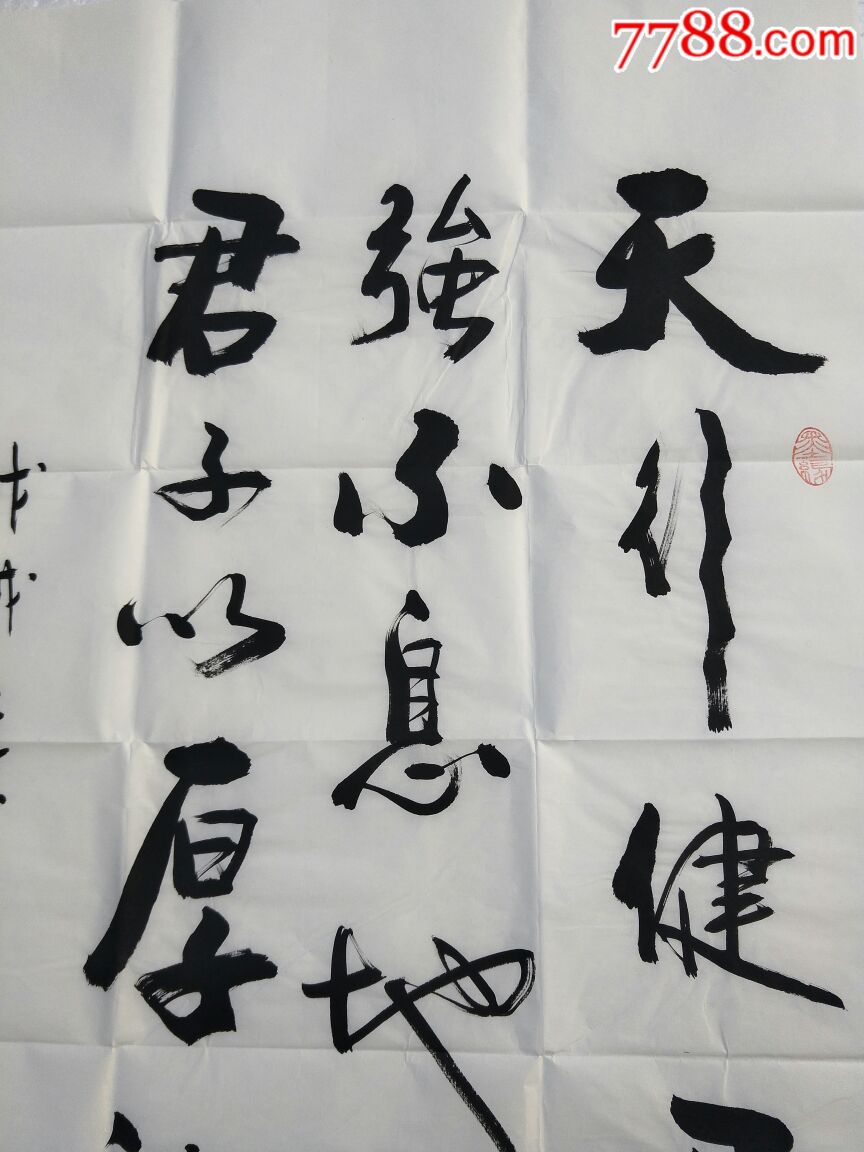 7788.com
天行健
強不息地
君子以厚